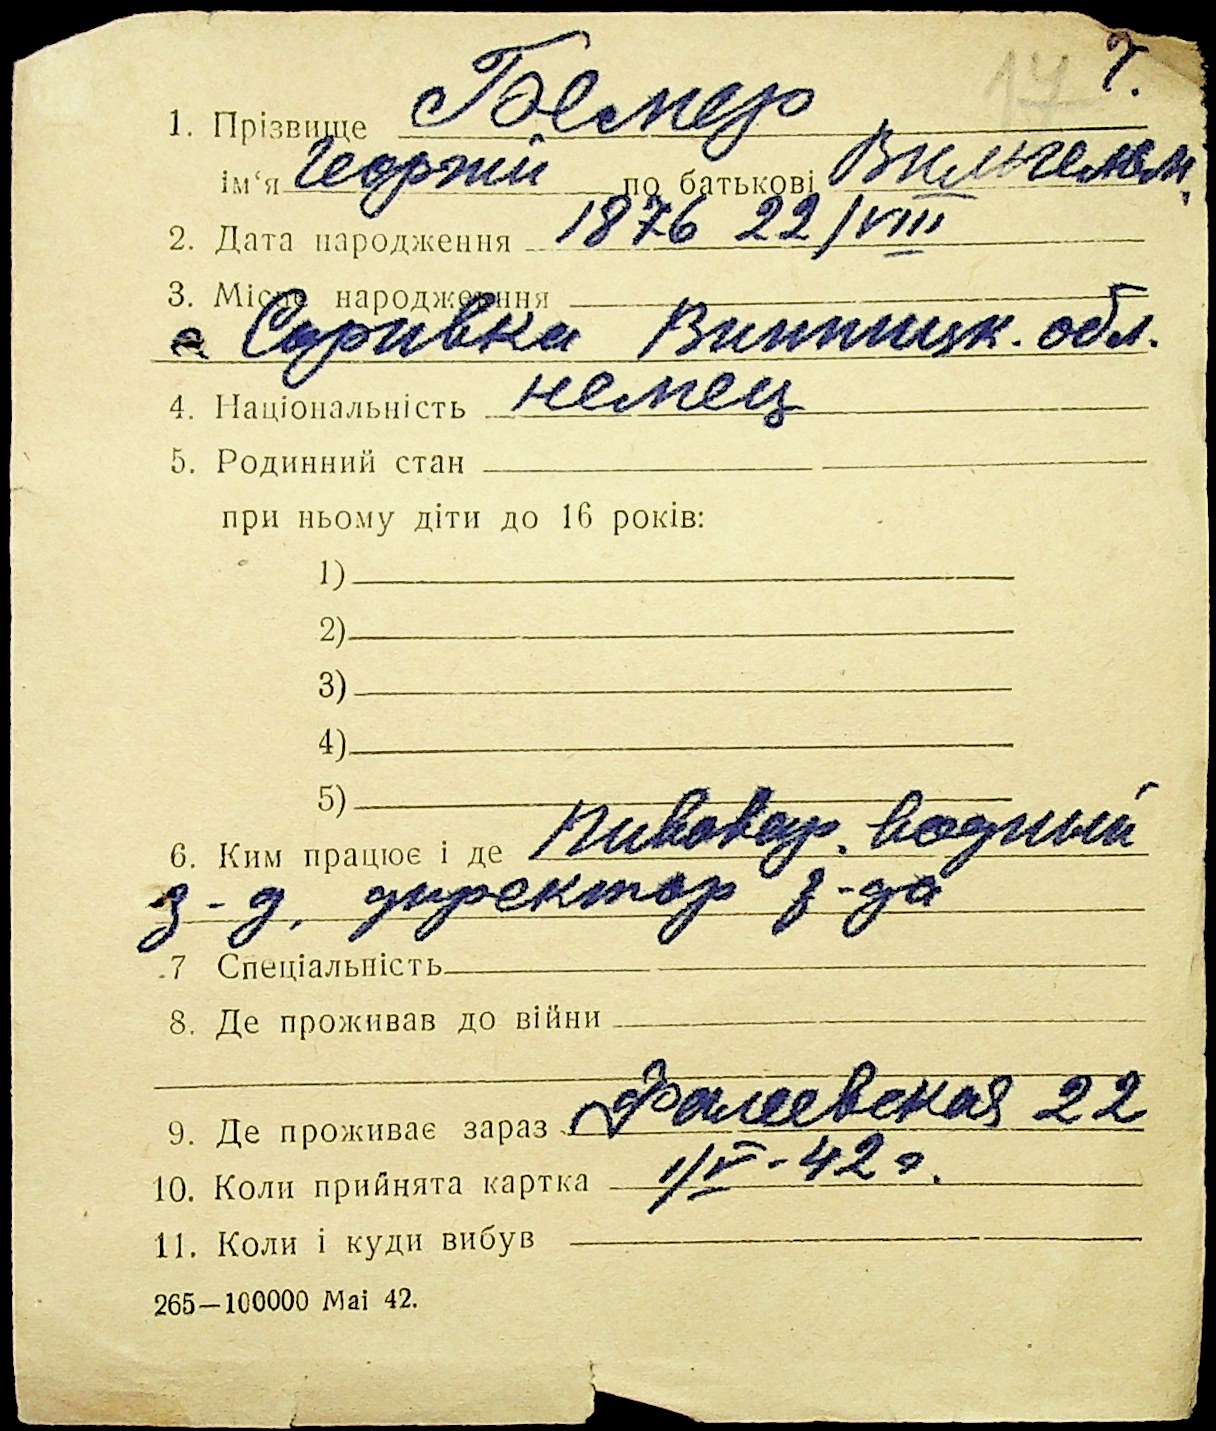 7.
17
1. Прізвище Бемер
ім‘я Георгий по батькові Вильгельм.
2. Дата народження 1876 22/VIII
3. Місце народження
с Соривка Винницк. обл.
4. Національність немец
5. Родинний стан
при ньому діти до 16 років:
1)
2)
3)
4)
5)
6. Ким працює і де Пивовар. водный
з-д, директор з-да
7 Спеціальність
8. Де проживав до війни
9. Де проживає зараз Фалеевская 22
10. Коли прийнята картка 1/V-42 г.
11. Коли і куди вибув
265—100000 Mai 42.